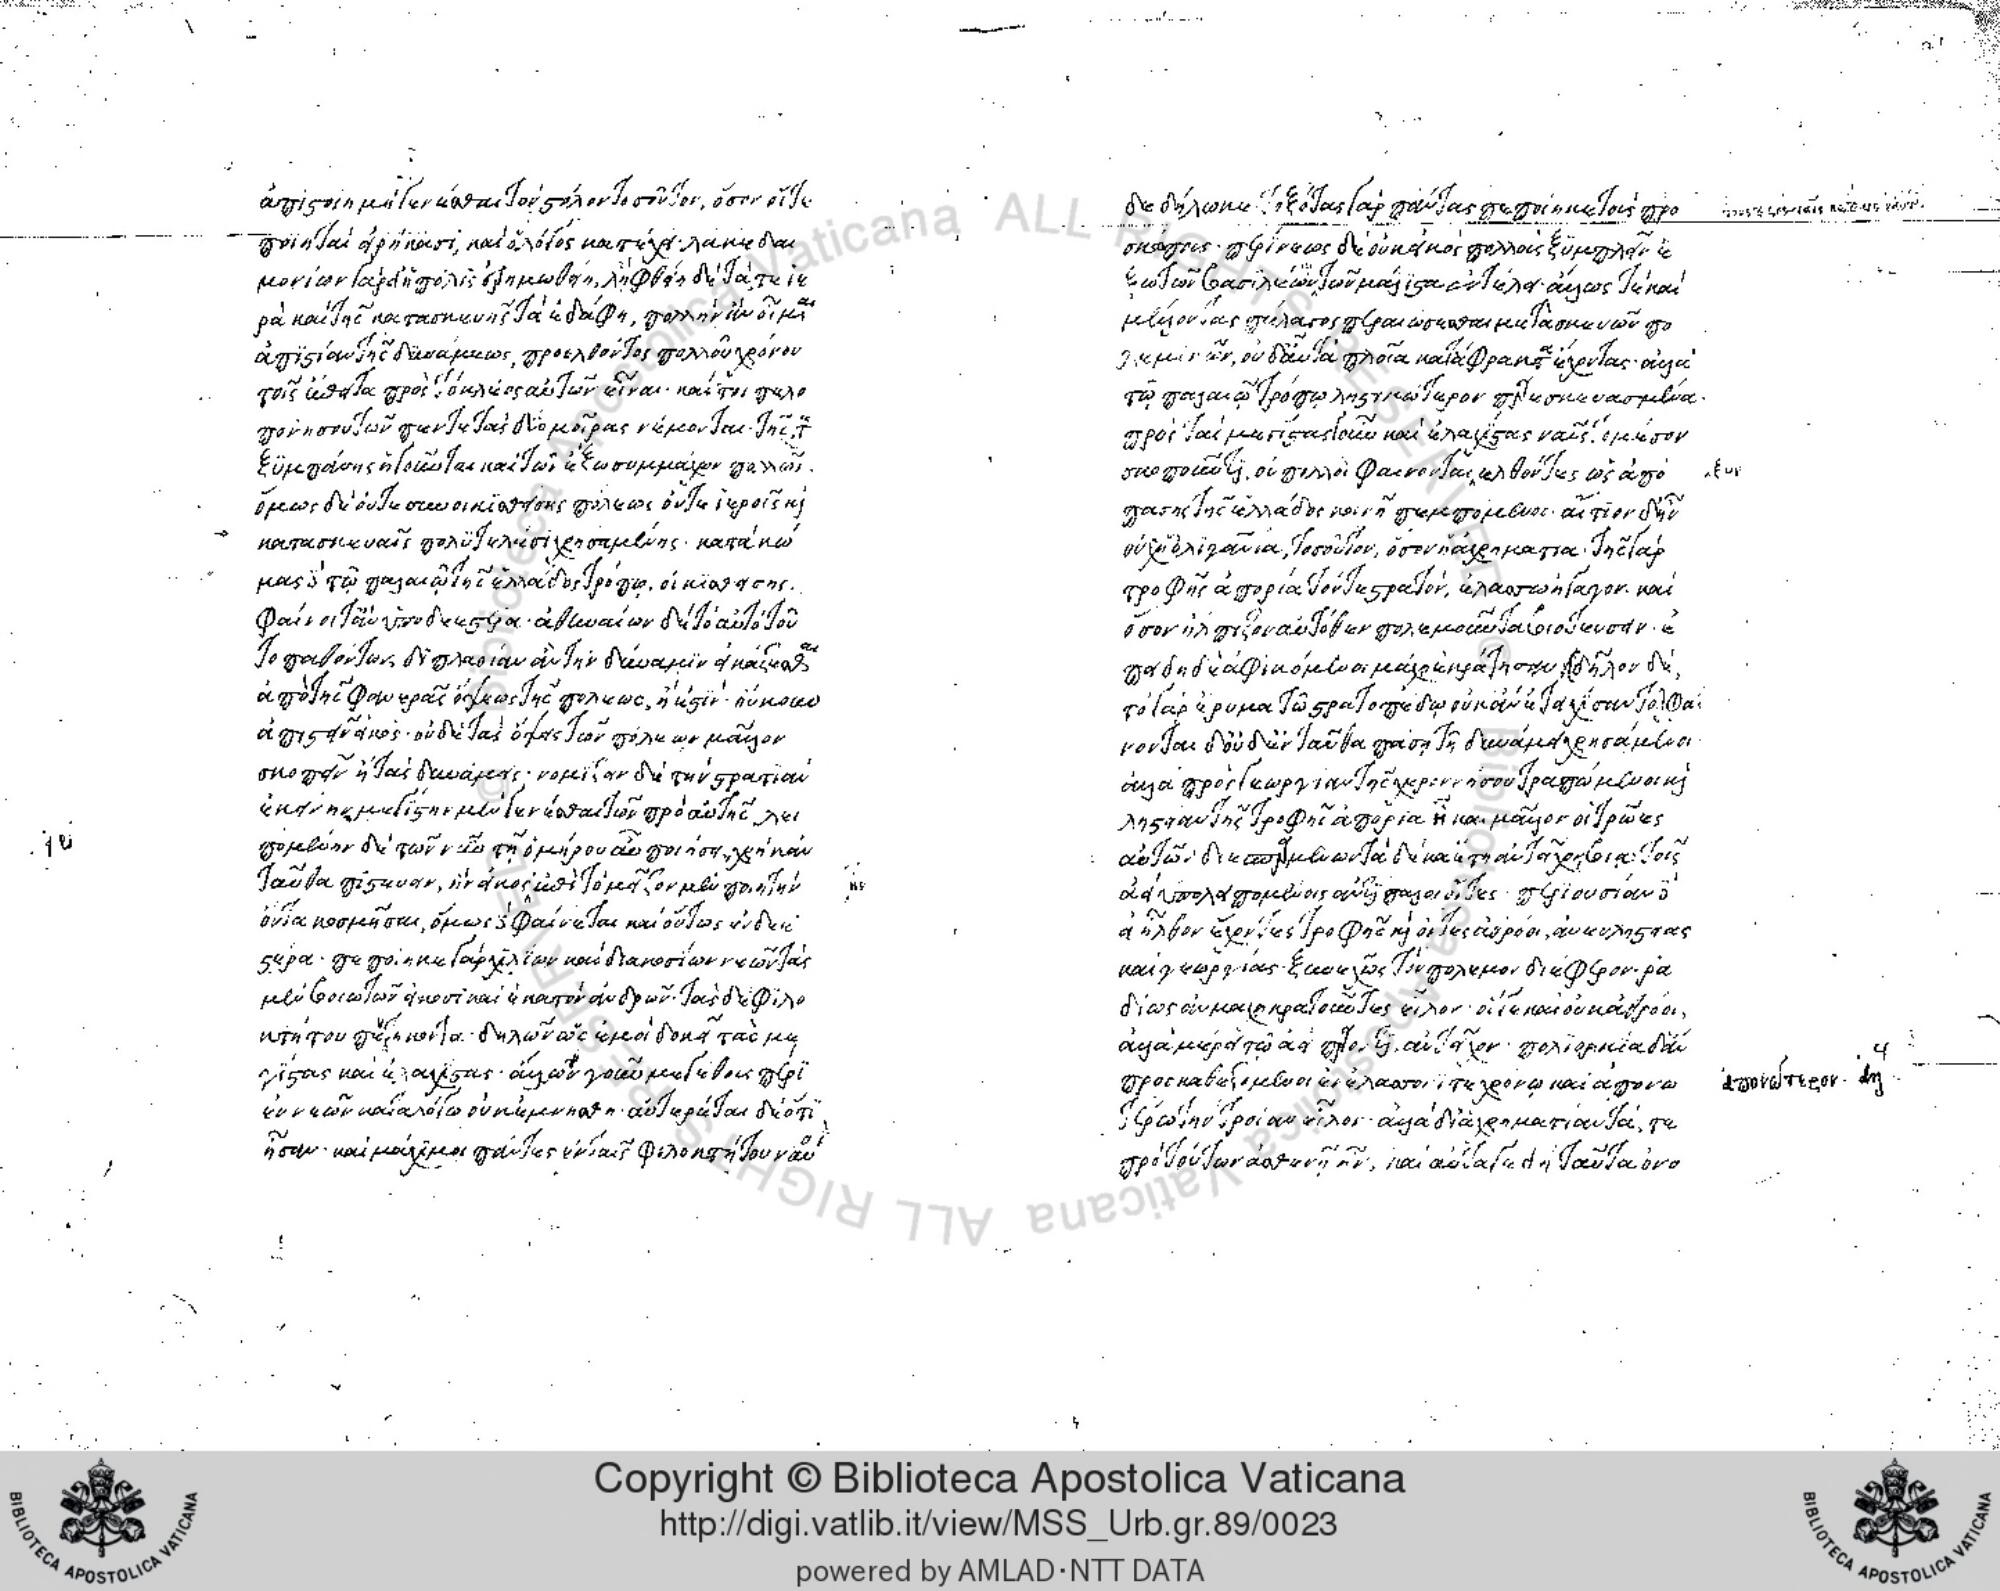 ἀπιστοίη μὴ γενέσθαι τὸν στόλον τοσοῦτον, ὅσον οἵ τε
ποιηταὶ εἰρήκασι, καὶ ὁ λόγος κατέχει· λακεδαι
μονίων γὰρ εἰ ἡ πόλις ἐρημωθείη, λειφθείη δὲ τά τε ἱε
ρὰ καὶ τῆς κατασκευῆς τὰ ἐδάφη, πολλὴν ἂν οἶμαι
ἀπιστίαν τῆς δυνάμεως, προελθόντος πολλοῦ χρόνου
τοῖς ἔπειτα πρὸς τὸ κλέος αὐτῶν εἶναι· καίτοι πελο
ποννήσου τῶν πέντε τὰς δύο μοίρας νέμονται· τῆς τε
ξυμπάσης ἡγοῦνται καὶ τῶν ἔξω συμμάχων πολλῶν.
ὅμως δὲ οὔτε ξυνοικισθείσης πόλεως οὔτε ἱεροῖς καὶ
κατασκευαῖς πολυτελέσι χρησαμένης· κατὰ κώ
μας δὲ τῷ παλαιῷ τῆς ἑλλάδος τρόπῳ, οἰκισθείσης.
φαίνοιτ' ἂν ὑποδεεστέρα· ἀθηναίων δὲ τὸ αὐτὸ τοῦ
το παθόντων, διπλασίαν ἂν τὴν δύναμιν εἰκάζεσθαι
ἀπὸ τῆς φανερᾶς ὄψεως τῆς πόλεως, ἢ ἔστιν· οὔκουν
ἀπιστεῖν εἰκός· οὐδὲ τὰς ὄψεις τῶν πόλεων μᾶλλον
σκοπεῖν ἢ τὰς δυνάμεις· νομίζειν δὲ τὴν στρατιὰν
ἐκείνην, μεγίστην μὲν γενέσθαι τῶν πρὸ αὑτῆς, λει
πομένην δὲ τῶν νῦν τῇ ὁμήρου αὖ ποιήσει, εἴ τι χρὴ κἀν
ταῦθα πιστεύειν, ἣν εἰκὸς ἐπὶ τὸ μεῖζον μὲν ποιητὴν
ὄντα κοσμῆσαι, ὅμως δὲ φαίνεται καὶ οὕτως ἐνδεε
στέρα· πεποίηκε γὰρ χιλίων καὶ διακοσίων νεῶν τὰς
μὲν βοιωτῶν εἴκοσι καὶ ἑκατὸν ἀνδρῶν· τὰς δὲ φιλο
κτήτου πεντήκοντα· δηλῶν ὡς ἐμοὶ δοκεῖ τὰς με
γίστας καὶ ἐλαχίστας· ἄλλων γοῦν μεγέθους πέρι
ἐν νεῶν καταλόγῳ οὐκ ἐμνήσθη· αὐτερέται δὲ ὅτι
ἦσαν· καὶ μάχιμοι πάντες ἐν ταῖς φιλοκτήτου ναυσὶ
δεδήλωκε· τοξότας γὰρ πάντας πεποίηκε τοὺς προ
σκώπους· περίνεως δὲ οὐκ εἰκὸς πολλοὺς ξυμπλεῖν ἔ
ξω τῶν βασιλέων καὶ τῶν μάλιστα ἐν τέλει· ἄλλως τε καὶ
μέλλοντας πέλαγος περαιώσεσθαι μετὰ σκευῶν πο
λεμικῶν, οὐδ' αὖ τὰ πλοῖα κατάφρακτα ἔχοντας· ἀλλὰ
τῷ παλαιῷ τρόπῳ λῃστικώτερον παρεσκευασμένα·
πρὸς τὰς μεγίστας γοῦν καὶ ἐλαχίστας ναῦς τὸ μέσον
σκοποῦντι, οὐ πολλοὶ φαίνονται ἐλθόντες ὡς ἀπὸ
πάσης τῆς ἑλλάδος κοινῇ πεμπόμενοι· αἴτιον δ' ἦν
οὐχ ἡ ὀλιγανθρωπία, τοσοῦτον, ὅσον ἡ ἀχρηματία· τῆς γὰρ
τροφῆς ἀπορίᾳ τόν τε στρατὸν, ἐλάσσω ἤγαγον· καὶ
ὅσον ἤλπιζον αὐτόθεν πολεμοῦντα βιοτεύσειν· ἐ
πειδὴ δὲ ἀφικόμενοι μάχῃ ἐκράτησαν, δῆλον δέ,
τὸ γὰρ ἔρυμα τῷ στρατοπέδῳ οὐκ ἂν ἐτειχίσαντο, φαί
νονται δ' οὐδ' ἐνταῦθα πάσῃ τῇ δυνάμει χρησάμενοι
ἀλλὰ πρὸς γεωργίαν τῆς χερρονήσου τραπόμενοι καὶ
λῃστείαν τῆς τροφῆς ἀπορίᾳ ᾗ καὶ μᾶλλον οἱ τρῶες
αὐτῶν διεσπαρμένων τὰ δέκα ἔτη ἀντεῖχον βίᾳ· τοῖς
ἀεὶ ὑπολειπομένοις ἀντίπαλοι ὄντες· περιουσίαν δὲ
εἰ ἦλθον ἔχοντες τροφῆς καὶ ὄντες ἀθρόοι, ἄνευ λῃστείας
καὶ γεωργίας· ξυνεχῶς τὸν πόλεμον διέφερον· ῥα
δίως ἂν μάχῃ κρατοῦντες εἷλον· οἵ γε καὶ οὐκ ἀθρόοι,
ἀλλὰ μέρει τῷ ἀεὶ παρόντι, ἀντεῖχον· πολιορκίᾳ δ' ἂν
προσκαθεζόμενοι ἐν ἐλάσσονί τε χρόνῳ καὶ ἀπονώ
τερον τὴν τροίαν εἷλον· ἀλλὰ δι' ἀχρηματίαν τά, τε
πρὸ τούτων ἀσθενῆ ἦν, καὶ αὐτά γε δὴ ταῦτα ὀνο
ἀπονώτερον
Copyright © Biblioteca Apostolica Vaticana
http://digi.vatlib.it/view/MSS_Urb.gr.89/0023
powered by AMLAD·NTT DATA
BIBLIOTECA APOSTOLICA VATICANA
BIBLIOTECA APOSTOLICA VATICANA